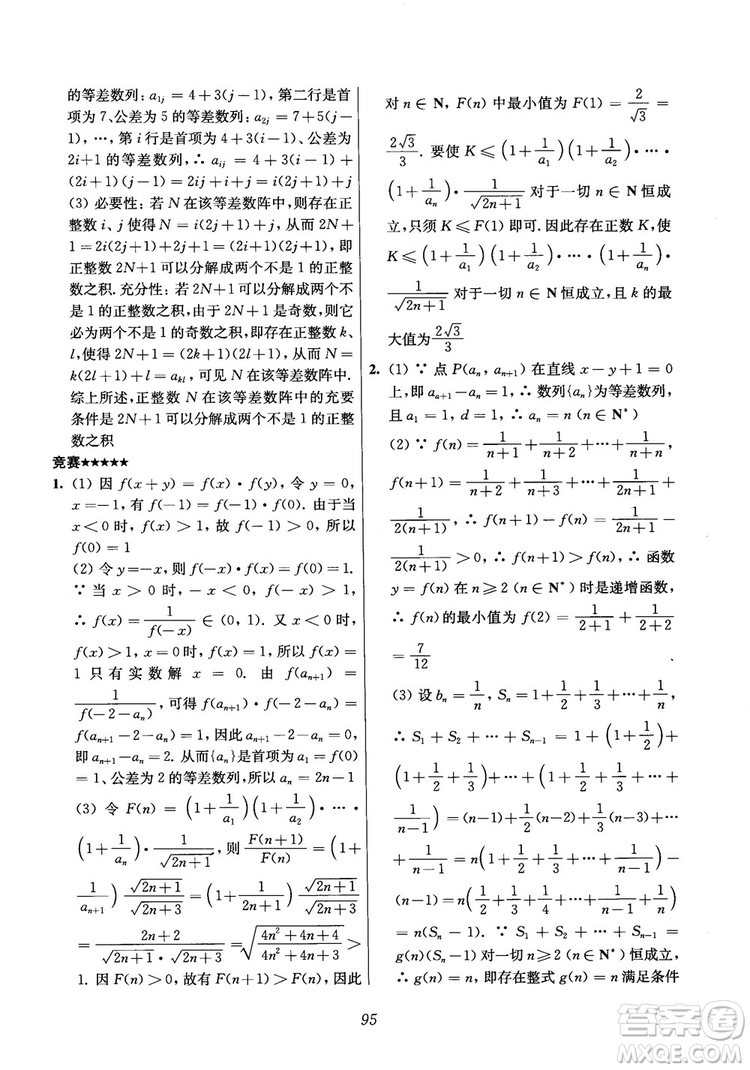 的等差数列:a₁ⱼ=4+3(j−1),第二行是首
项为7、公差为5的等差数列:a₂ⱼ=7+5(j−
1),…,第i行是首项为4+3(i−1)、公差为
2i+1的等差数列,∴aᵢⱼ=4+3(i−1)+
(2i+1)(j−1)=2ij+i+j=i(2j+1)+j
(3) 必要性:若N在该等差数阵中,则存在正
整数i、j使得N=i(2j+1)+j,从而2N+
1=2i(2j+1)+2j+1=(2i+1)(2j+1),即
正整数2N+1可以分解成两个不是1的正整
数之积.充分性:若2N+1可以分解成两个不
是1的正整数之积,由于2N+1是奇数,则它
必为两个不是1的奇数之积,即存在正整数k、
l,使得2N+1=(2k+1)(2l+1),从而N=
k(2l+1)+l=aₖₗ,可见N在该等差数阵中.
综上所述,正整数N在该等差数阵中的充要
条件是2N+1可以分解成两个不是1的正整
数之积
竞赛★★★★★
1. (1) 因f(x+y)=f(x)·f(y),令y=0,
x=−1,有f(−1)=f(−1)·f(0).由于当
x<0时,f(x)>1,故f(−1)>0,所以
f(0)=1
(2) 令y=−x,则f(−x)·f(x)=f(0)=1.
∵当x>0时,−x<0时,f(−x)>1,
∴f(x)=1/f(−x)∈(0,1).又x<0时,
f(x)>1,而x=0时,f(0)=1,所以f(x)=
1只有实数解x=0.由f(aₙ₊₁)=
1/f(−2−aₙ),可得f(aₙ₊₁)·f(−2−aₙ)=1,即
f(aₙ₊₁−2−aₙ)=1,因此aₙ₊₁−2−aₙ=0,
即aₙ₊₁−aₙ=2.从而{aₙ}是首项为a₁=f(0)
=1、公差为2的等差数列,所以aₙ=2n−1
(3) 令F(n)=(1+1/a₁)(1+1/a₂)·…·
(1+1/aₙ)·1/√(2n+1),则F(n+1)/F(n)=(1+
1/aₙ₊₁)√(2n+1)/√(2n+3)=(1+1/(2n+1))√(2n+1)/√(2n+3)
=(2n+2)/(√(2n+1)·√(2n+3))=√((4n²+4n+4)/(4n²+4n+3))>
1.因F(n)>0,故有F(n+1)>F(n),因此
对n∈N,F(n)中最小值为F(1)=2/√3=
2√3/3.要使K≤(1+1/a₁)(1+1/a₂)·…·
(1+1/aₙ)·1/√(2n+1)对于一切n∈N恒成
立,只须K≤F(1)即可.因此存在正数K,使
K≤(1+1/a₁)(1+1/a₂)·…·(1+1/aₙ)·
1/√(2n+1)对于一切n∈N恒成立,且K的最
大值为2√3/3
2. (1) ∵点P(aₙ,aₙ₊₁)在直线x−y+1=0
上,即aₐ₊₁−aₙ=1,∴数列{aₙ}为等差数列,
且a₁=1,d=1,∴aₙ=n(n∈N*)
(2) ∵f(n)=1/(n+1)+1/(n+2)+…+1/2n,
f(n+1)=1/(n+2)+1/(n+3)+…+1/(2n+1)+
1/2(n+1),∴f(n+1)−f(n)=1/(2n+1)−
1/2(n+1)>0,∴f(n+1)>f(n).∴函数
y=f(n)在n≥2(n∈N*)时是递增函数,
∴f(n)的最小值为f(2)=1/(2+1)+1/(2+2)
=7/12
(3) 设bₙ=1/n,Sₙ=1+1/2+1/3+…+1/n,
∴S₁+S₂+…+Sₙ₋₁=1+(1+1/2)
+(1+1/2+1/3)+…+(1+1/2+1/3+…+
1/(n−1))=(n−1)+(n−2)1/2+(n−3)1/3+…
+1/(n−1)=n(1+1/2+1/3+…+1/(n−1))−
(n−1)=n(1+1/2+1/3+…+1/(n−1)+1/n−1)
=n(Sₙ−1).∵S₁+S₂+…+Sₙ₋₁=
(Sₙ−1)g(n)对一切n≥2(n∈N*)恒成立,
∴g(n)=n,即存在整式g(n)=n满足条件
95
答案圈